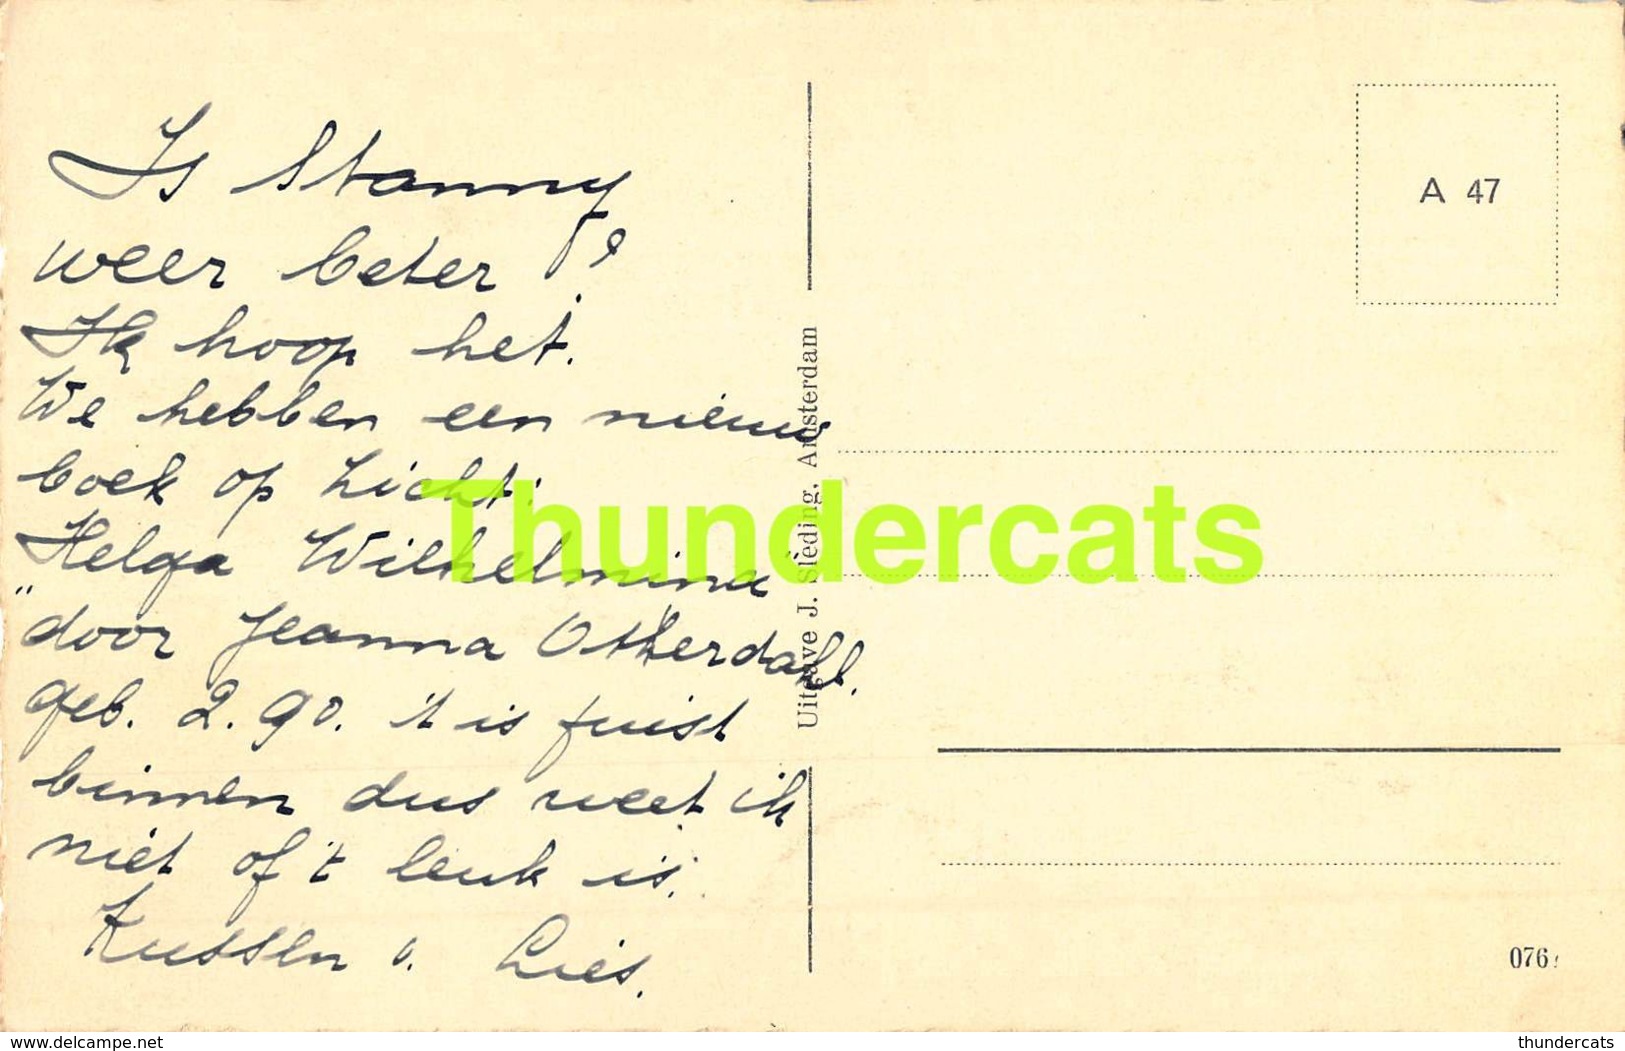 Is Stanny
weer beter ?
Ik hoop het.
We hebben een nieuw
boek op zicht:
Helga Wilhelmina
" door Jeanna Otterdahl.
geb. 2.90. 't is juist
binnen dus weet ik
niet of 't leuk is.
Kussen v. Lies.
Uitgave J. Sleding, Amsterdam
A 47
076
Thundercats
www.delcampe.net
thundercats